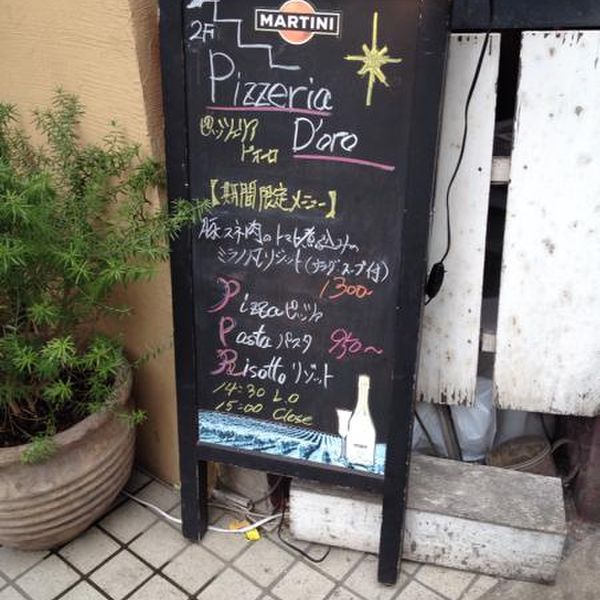 MARTINI
2F
Pizzeria
ピッツェリア D'oro
ドォーロ
【期間限定メニュー】
豚スネ肉のトマト煮込みの
ミラノ風リゾット(サラダ・スープ付)
1300-
Pizza ピッツァ
Pasta パスタ 950~
Risotto リゾット
14:30 L.O
15:00 Close